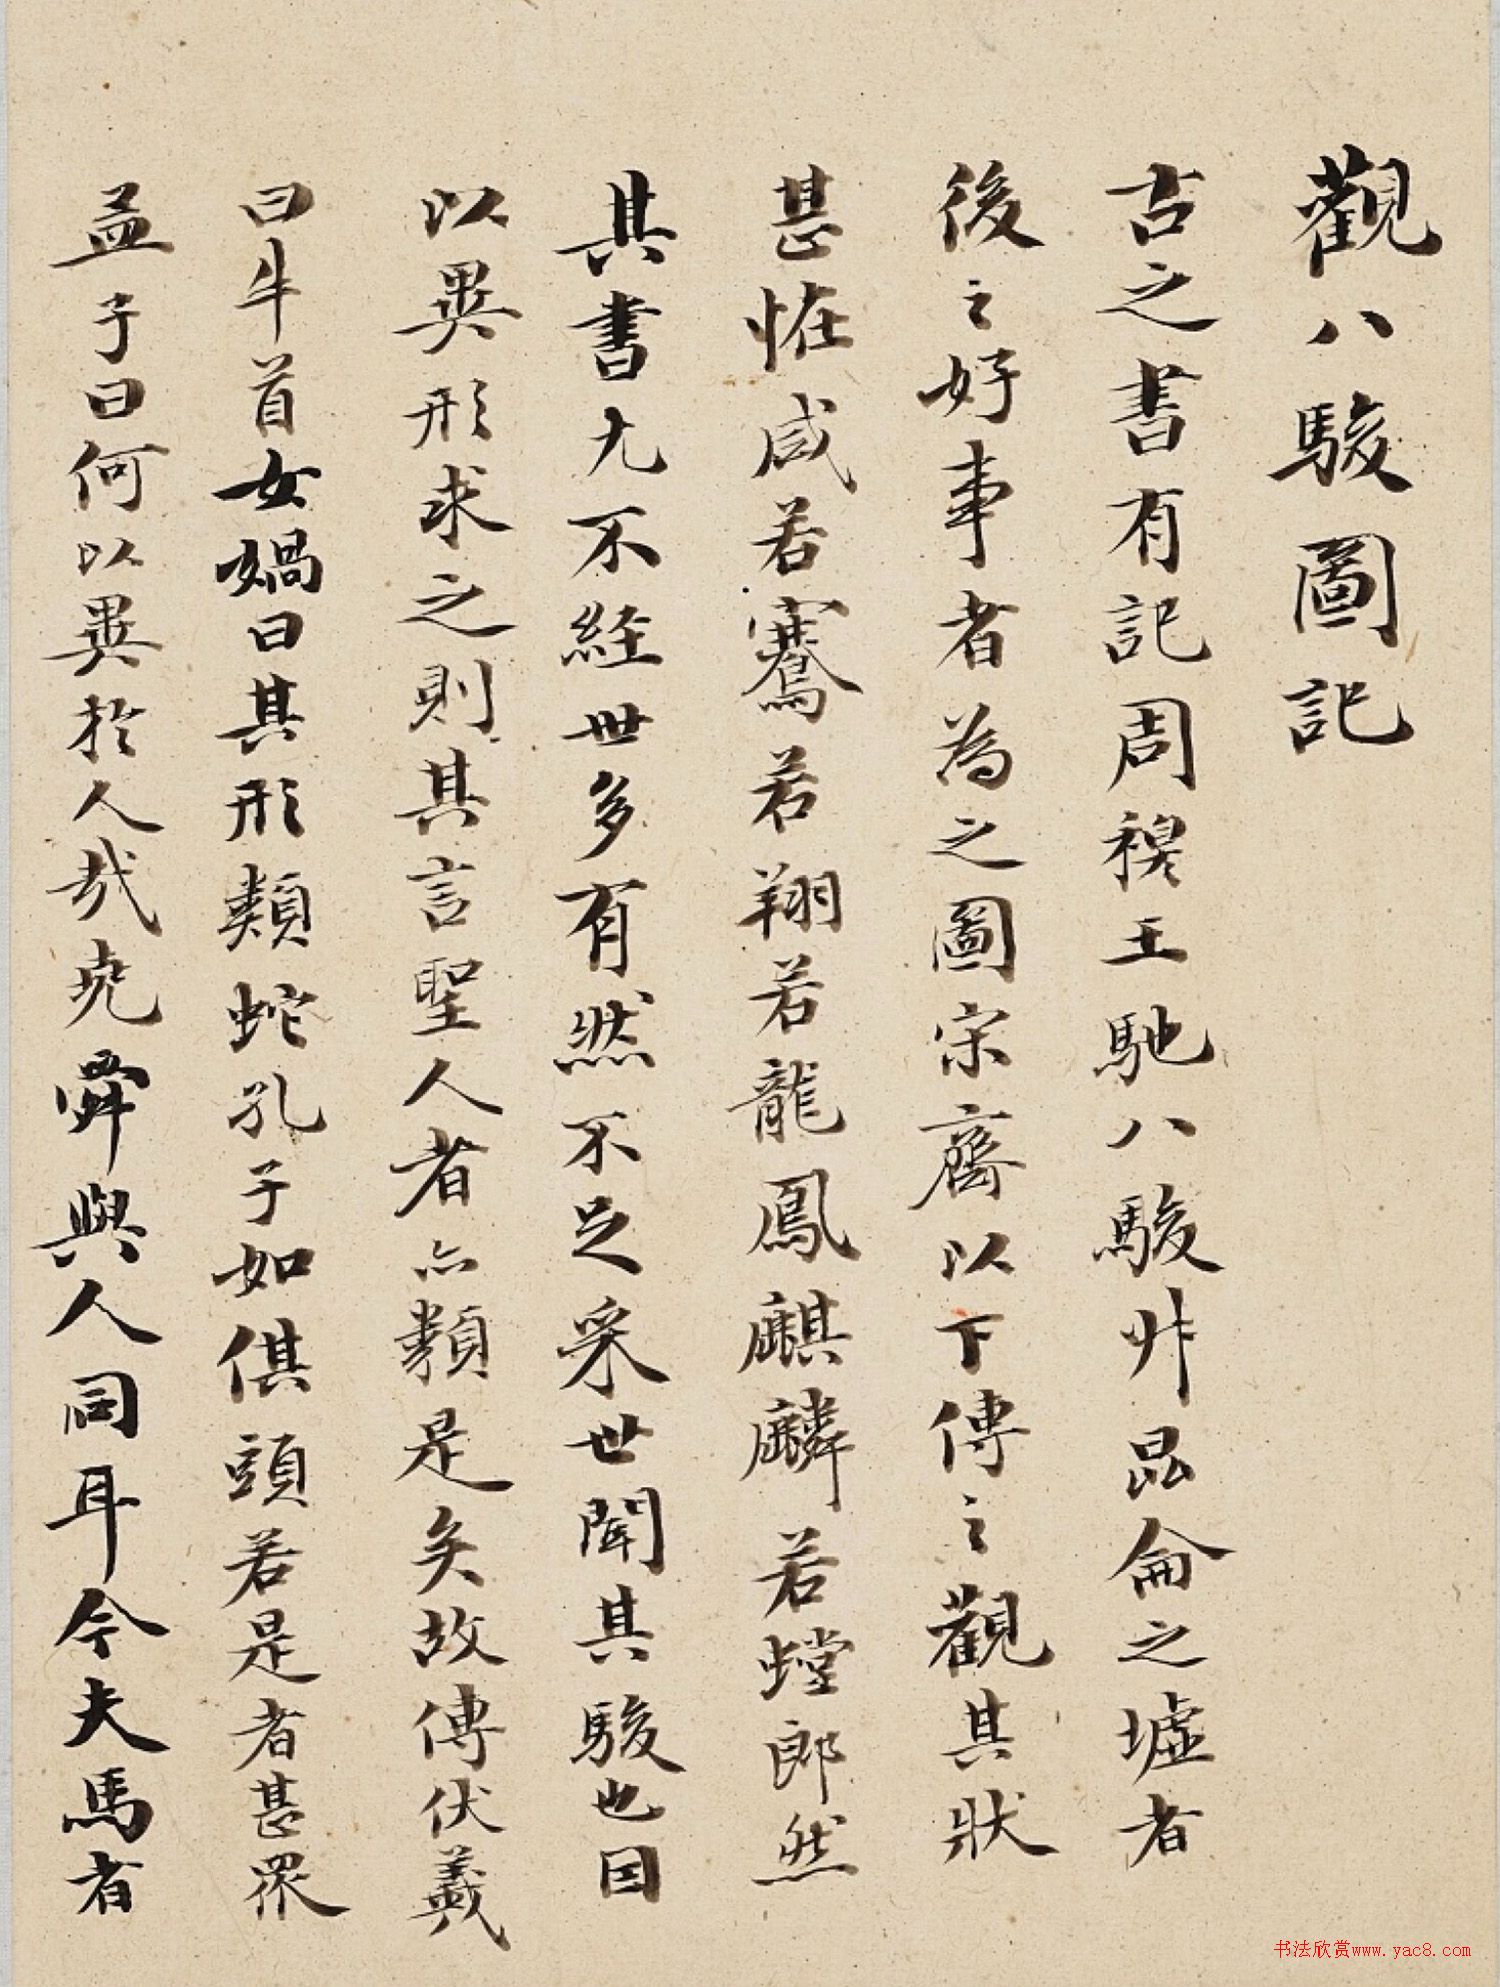 觀八駿圖記
古之書有記周穆王馳八駿升昆侖之墟者
後之好事者為之圖宋齊以下傳之觀其狀
甚恠咸若騫若翔若龍鳳麒麟若螳郎然
其書尤不經世多有然不足采世聞其駿也因
以異形求之則其言聖人者亦類是矣故傳伏羲
曰牛首女媧曰其形類蛇孔子如倛頭若是者甚眾
孟子曰何以異於人哉堯舜與人同耳今夫馬者
书法欣赏www.yac8.com